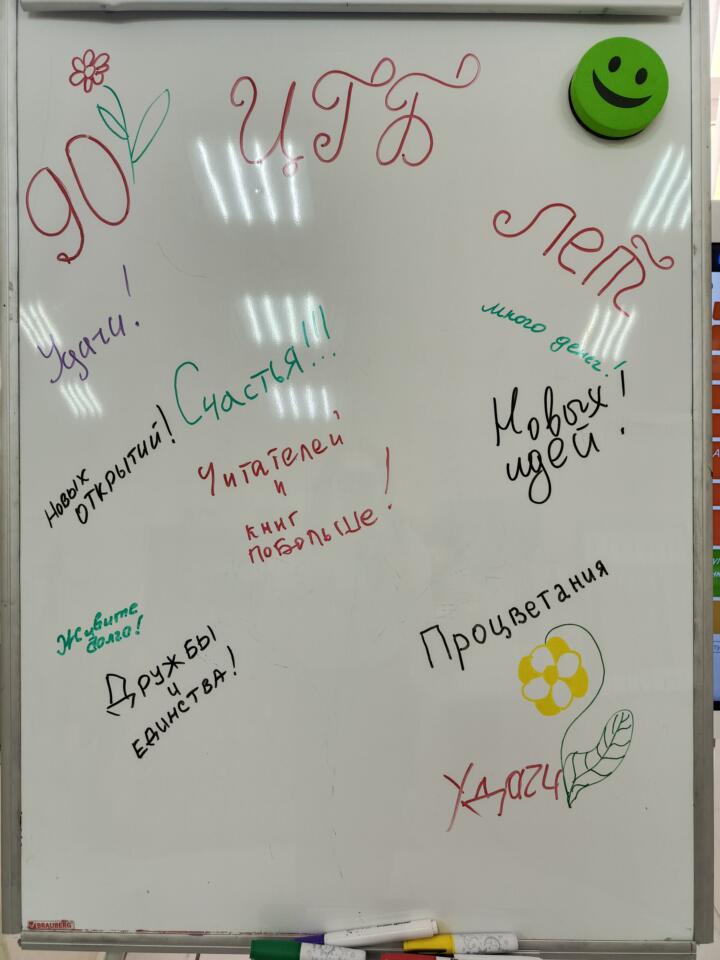 90
ЦГБ
лет
Удачи!
Счастья!!!
много денег!
Новых
открытий!
Читателей
и
книг
побольше!
Новых!
идей!
Живите
долго!
Дружбы
и
единства!
Процветания
Удачи
BRAUBERG